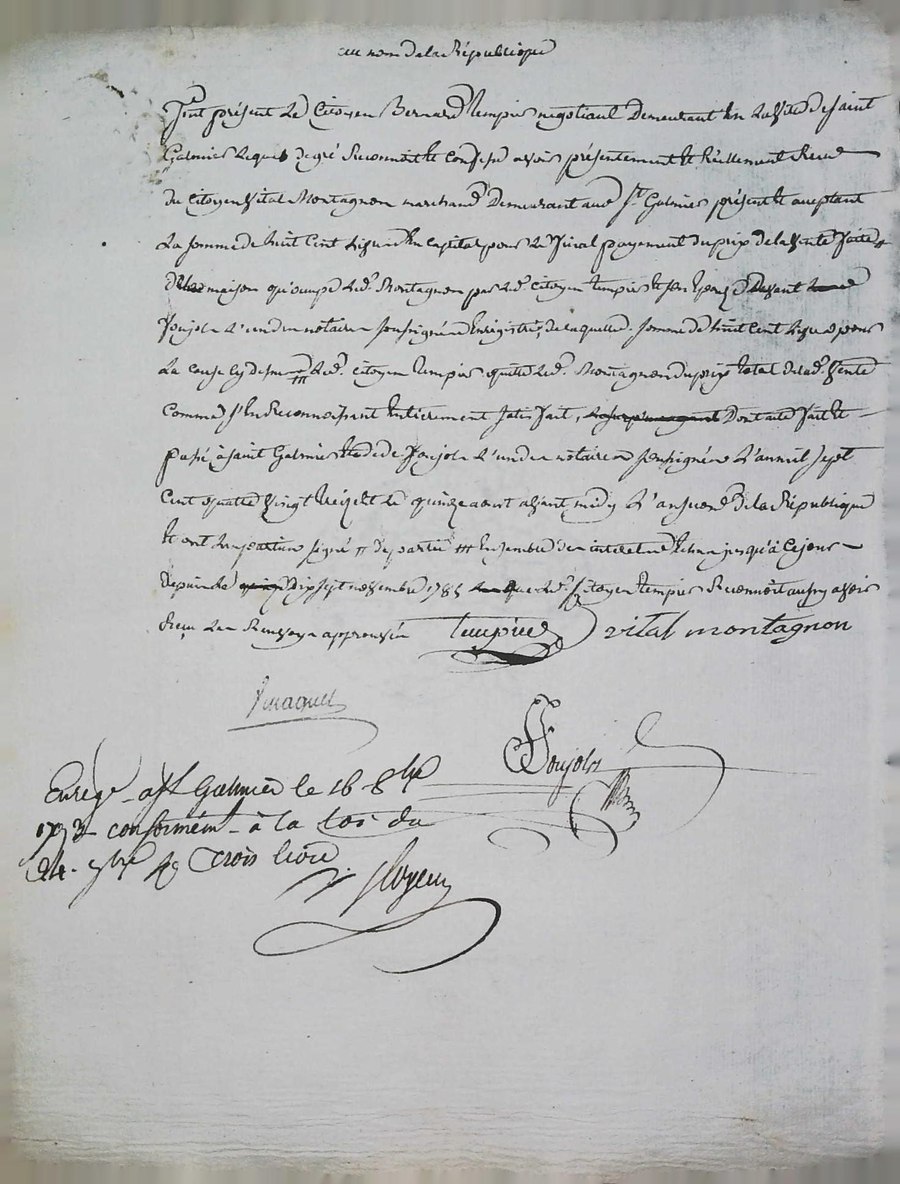 au nom de la République
fut présent Le Citoyen Bernard tempier negotiant Demeurant En La ville de saint
Galmier Lequel de gré Reconnoit Et Confesse avoir présentement Et Réellement Receu
du Citoyen vital Montagnon marchand Demeurant aud St. Galmier présent Et acceptant
La somme de huit Cent Livres En capital pour Le final payement du prix de la vente faite
maison qu'occupe Led. Montagnon par Led. citoyen tempier Et son Epouse Devant
Poujols L'un des notaires soussignés Enregistré, de laquelle somme de huit Cent Livres pour
La cause cy dessus Led. citoyen tempier quitte Led. Montagnon du prix total de lad. vente
Comme s'En Reconnoissant Entierement satisfait, Dont acte fait Et
passé à saint Galmier Etude de Poujols L'un des notaires soussignés L'an mil sept
Cent quatre vingt treize Et Le quinze aout avant midy L'an second de la République
Et ont Les parties signé # de partie ### Ensemble des interets Echus jusqu'à Ce jour
depuis le Dix sept novembre 1785 que Led. Citoyen tempier Reconnoit aussy avoir
Reçu Les Renvoys approuvés Tempier vital montagnon
Poujols
Enrege. a St Galmier le 16 8bre
1793 conformémt. à la loi du
24. 9bre R trois livres